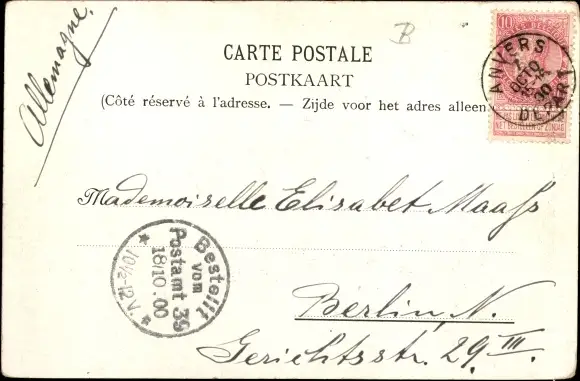 Allemagne.
B
CARTE POSTALE
POSTKAART
(Côté réservé à l'adresse. — Zijde voor het adres alleen
10
ANVERS
OCTO
00
DÉPART
NIET BESTELLEN OP ZONDAG
Mademoiselle Elisabet Maaß
Bestellt
vom
Postamt 39
18/10.00
10½-12V.
Berlin N.
Gerichtsstr. 29.III.